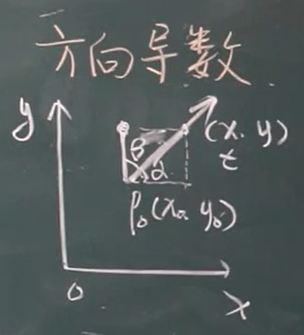 方向导数
y
β
α
(x, y)
t
P₀(x₀, y₀)
0
x